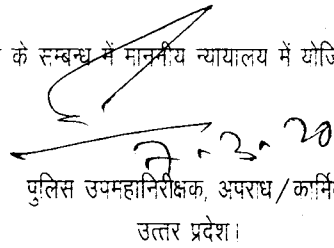 के सम्बन्ध में माननीय न्यायालय में योजि
7.3.20
पुलिस उपमहानिरीक्षक, अपराध/कार्मि
उत्तर प्रदेश।